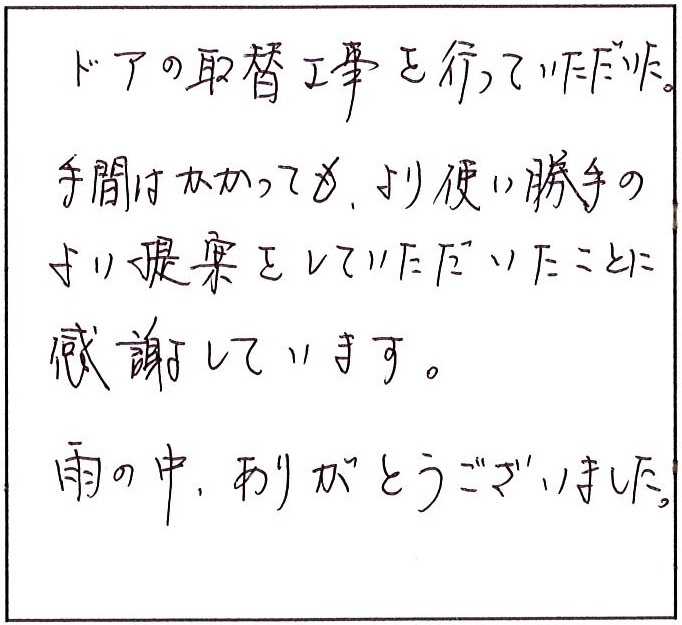 ドアの取替工事を行っていただいた。
手間はかかっても、より使い勝手の
よい提案をしていただいたことに
感謝しています。
雨の中、ありがとうございました。